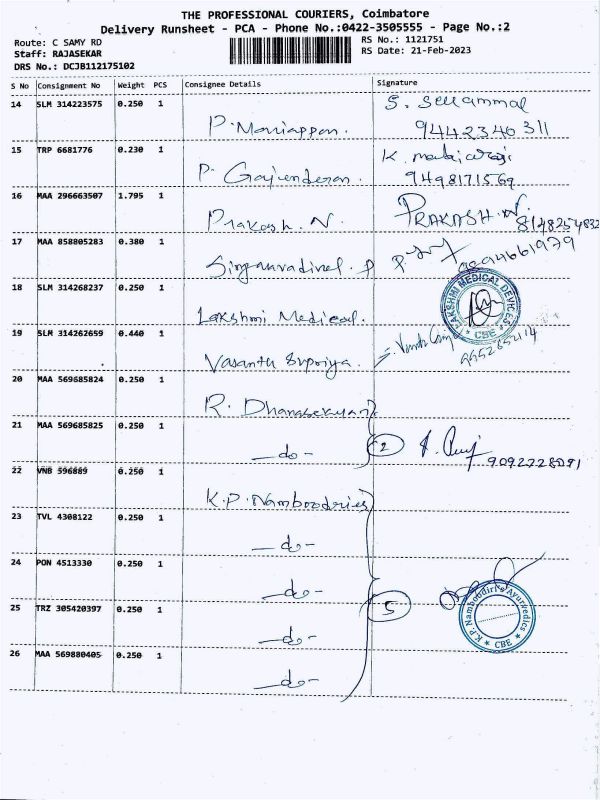 THE PROFESSIONAL COURIERS, Coimbatore
Delivery Runsheet - PCA - Phone No.:0422-3505555 - Page No.:2
Route: C SAMY RD
Staff: RAJASEKAR
DRS No.: DCJB112175102
RS No.: 1121751
RS Date: 21-Feb-2023
S No Consignment No Weight PCS Consignee Details Signature
14 SLM 314223575 0.250 1 P. Maniappan. S. Sellammal
9442340311
15 TRP 6681776 0.230 1 P. Gajenderan. K.
9498171569
16 MAA 296663507 1.795 1 Prakash. N. PRAKASH.N.
8148254832
17 MAA 858805283 0.380 1 Singanvadivel. P
9994661979
18 SLM 314268237 0.250 1 Lakshmi Medical. LAKSHMI MEDICAL DEVICES
CBE
19 SLM 314262659 0.440 1 Vasantu Supriya.
20 MAA 569685824 0.250 1 R. Dhanasekaran
21 MAA 569685825 0.250 1 -do- 2
9092228091
22 VNB 596889 0.250 1 K.P. Namboodries
23 TVL 4308122 0.250 1 -do-
24 PON 4513330 0.250 1 -do-
25 TRZ 305420397 0.250 1 -do- 5 K.P. Namboodiri's Ayurvedics
CBE
26 MAA 569880405 0.250 1 -do-